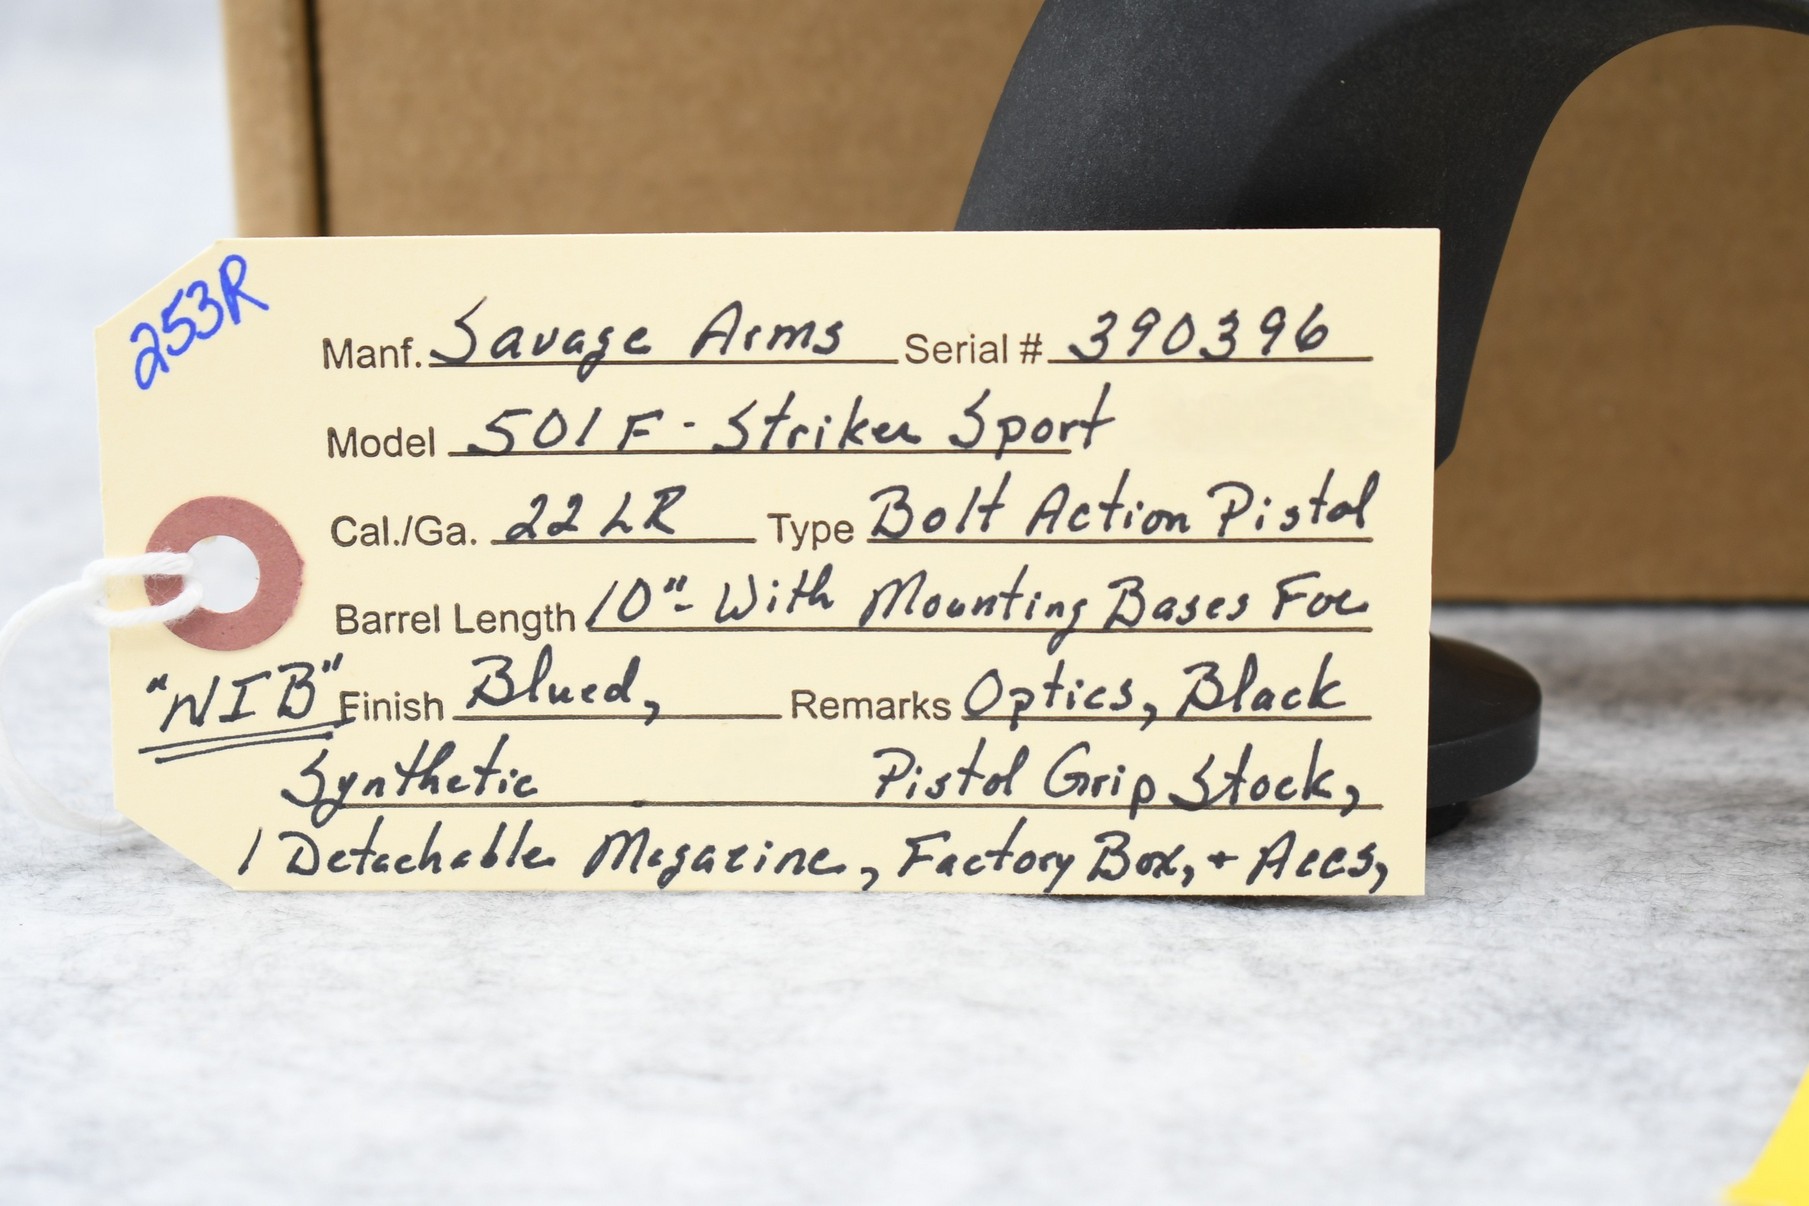 253R
Manf. Savage Arms Serial # 390396
Model 501F - Striker Sport
Cal./Ga. 22 LR Type Bolt Action Pistol
Barrel Length 10"- With Mounting Bases For
"NIB" Finish Blued, Remarks Optics, Black
Synthetic Pistol Grip Stock,
1 Detachable Magazine, Factory Box, + Accs,